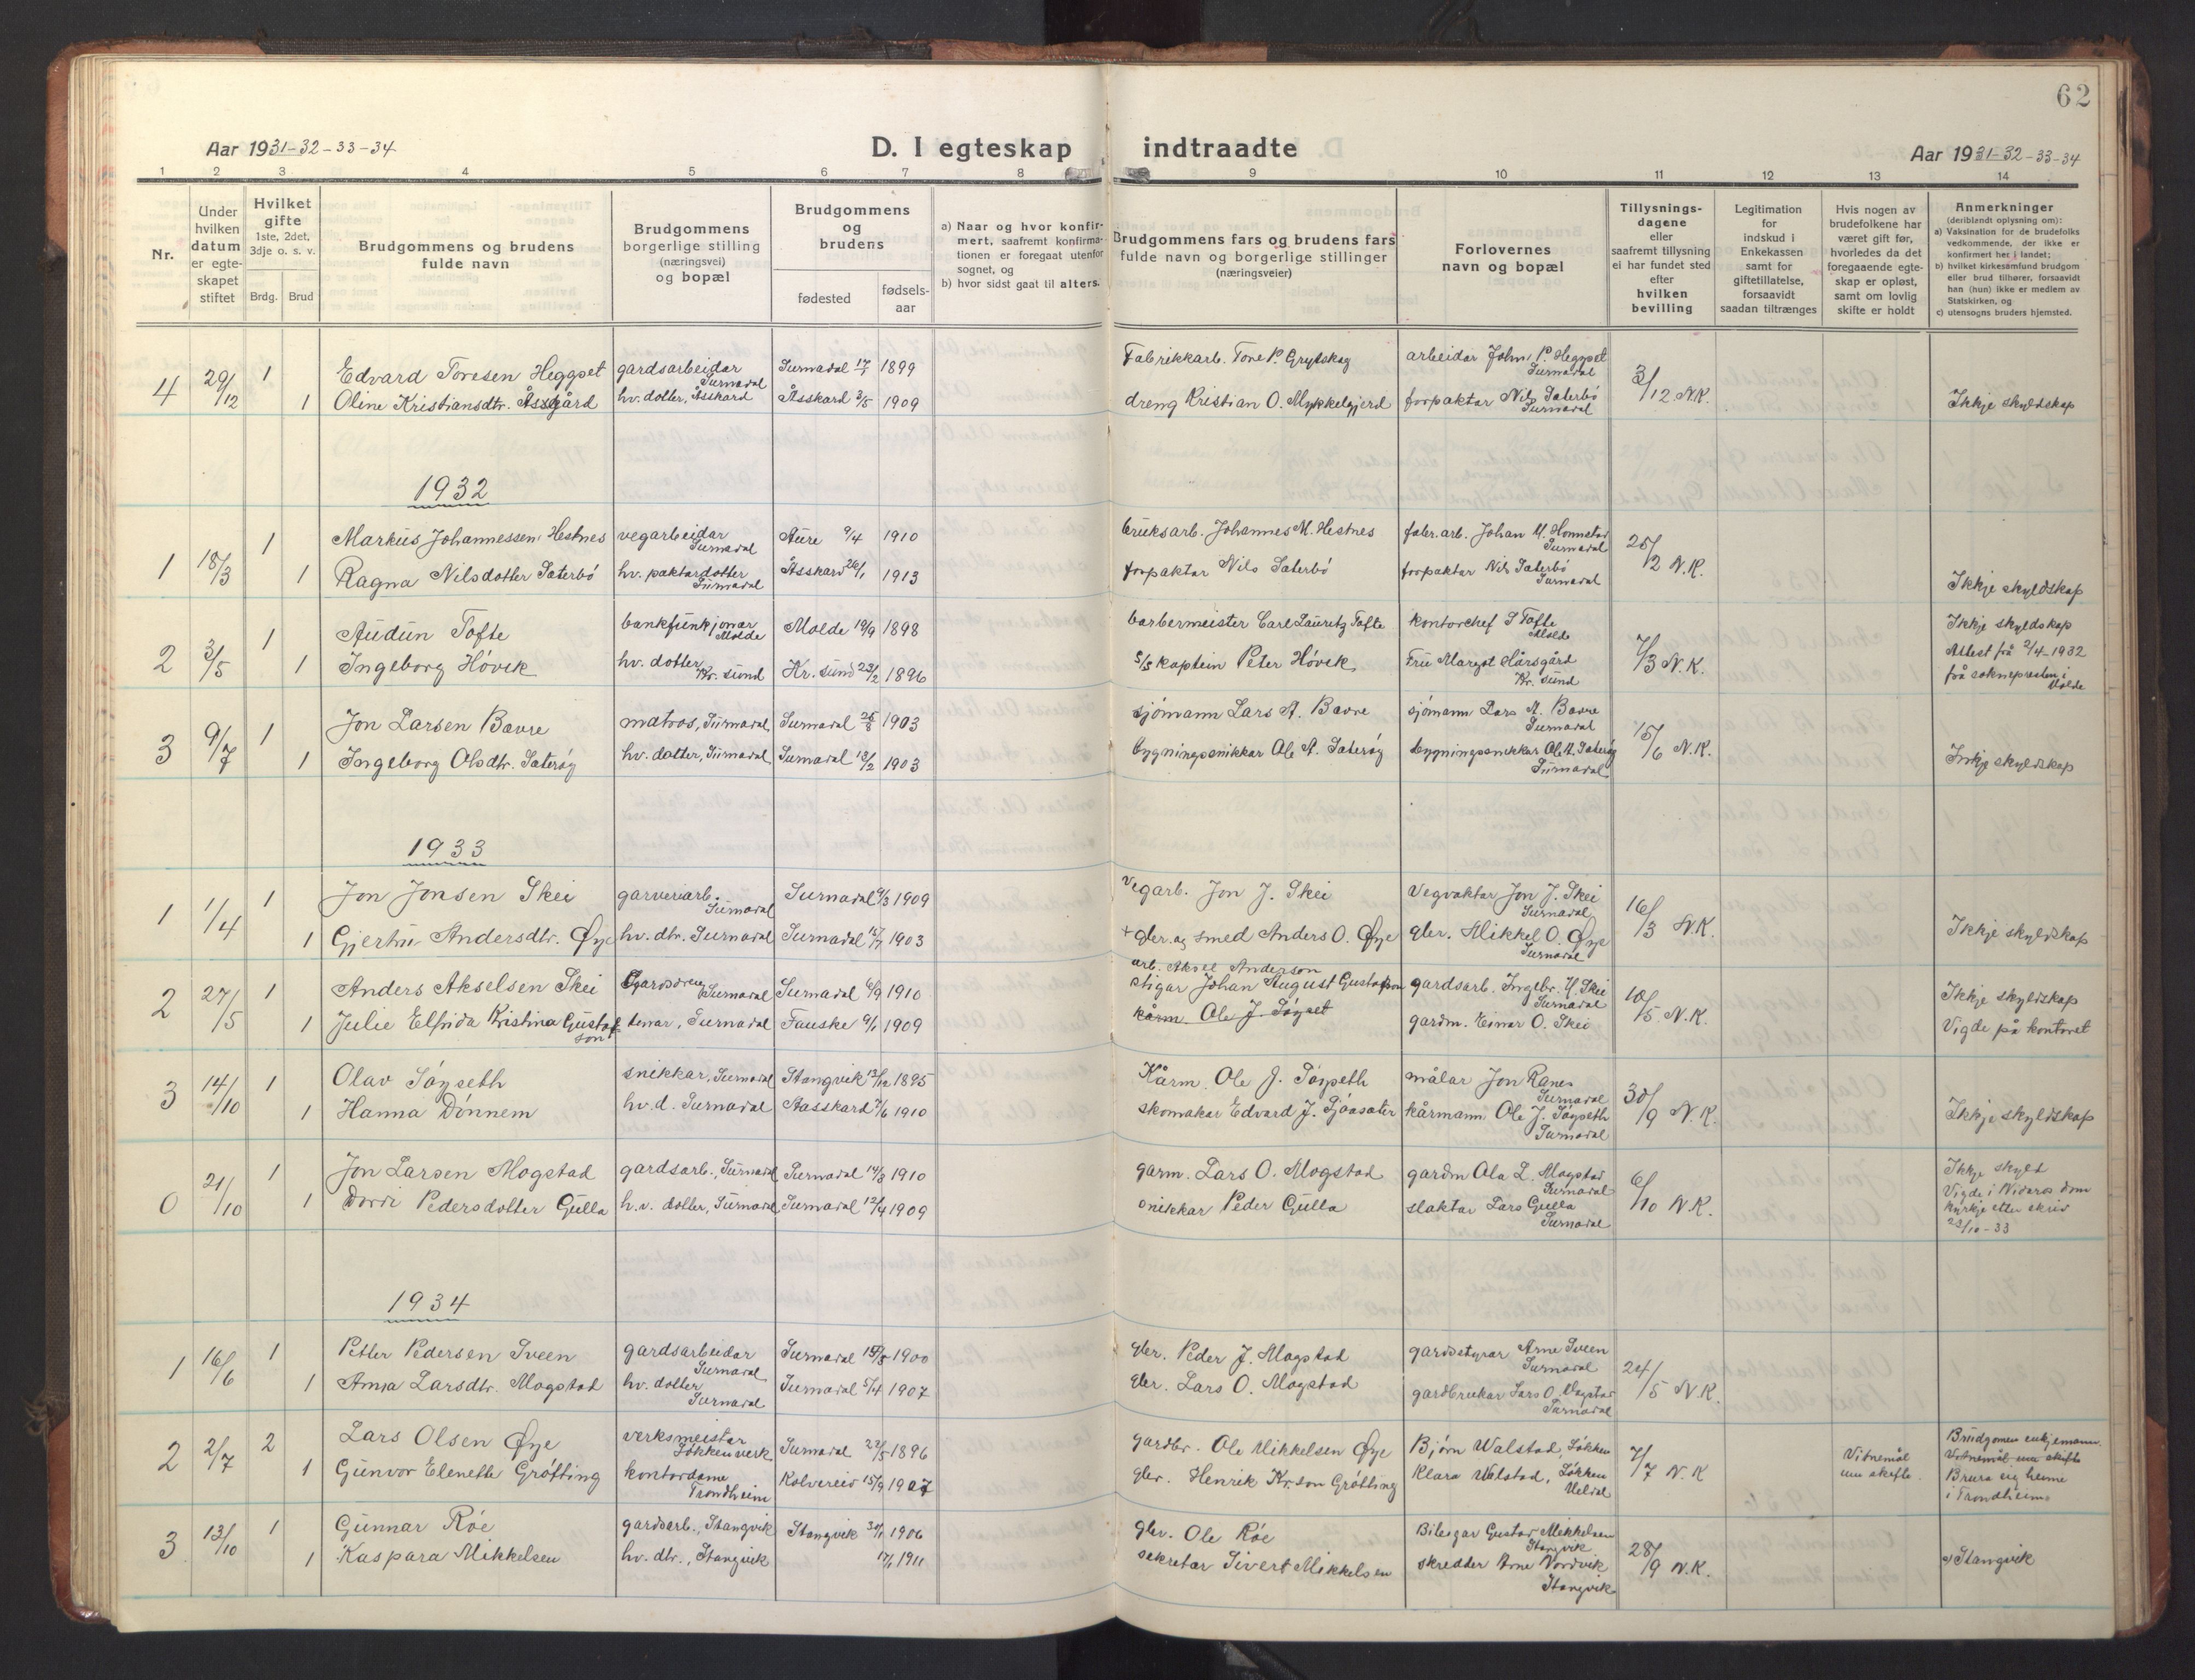 62
Aar 1931-32-33-34
D. I egteskap indtraadte
Aar 1931-32-33-34
1 2 3 4 5 6 7 8 9 10 11 12 13 14
Nr.
Under hvilken datum er egteskapet stiftet
Hvilket gifte 1ste, 2det, 3dje o. s. v.
Brdg. Brud
Brudgommens og brudens fulde navn
Brudgommens borgerlige stilling (næringsvei) og bopæl
Brudgommens og brudens
fødested
fødsels-aar
a) Naar og hvor konfirmert, saafremt konfirmationen er foregaat utenfor sognet, og
b) hvor sidst gaat til alters.
Brudgommens fars og brudens fars fulde navn og borgerlige stillinger (næringsveier)
Forlovernes navn og bopæl
Tillysningsdagene eller saafremt tillysning ei har fundet sted efter hvilken bevilling
Legitimation for indskud i Enkekassen samt for giftetillatelse, forsaavidt saadan tiltrænges
Hvis nogen av brudefolkene har været gift før, hvorledes da det foregaaende egteskap er opløst, samt om lovlig skifte er holdt
Anmerkninger
(deriblandt oplysning om):
a) Vaksination for de brudefolks vedkommende, der ikke er konfirmert her i landet;
b) hvilket kirkesamfund brudgom eller brud tilhører, forsaavidt han (hun) ikke er medlem av Statskirken, og
c) utensogns bruders hjemsted.
4 29/12 1 Edvard Toresen Heggset gardsarbeidar Surnadal Surnadal 17/7 1899 Fabrikkarb. Tore P. Grytskog arbeidar John P. Heggset Surnadal 3/12 N.K.
1 Oline Kristiansdtr. Åsskård hv. dotter, Åsskard Åsskard 3/5 1909 dreng Kristian O. Mykkelgjerd forpaktar Nils Sæterbö Surnadal Ikkje skyldskap
1932
1 18/3 1 Markus Johannessen Hestnes vegarbeidar Surnadal Aure 9/4 1910 bruksarb. Johannes M. Hestnes fabr.arb. Johan M. Honnstad Surnadal 25/2 N.K.
1 Ragna Nilsdotter Sæterbö hv. paktardotter Surnadal Åsskard 26/1 1913 forpaktar Nils Sæterbö forpaktar Nils Sæterbö Surnadal Ikkje skyldskap
2 3/5 1 Audun Tofte bankfunkjonær Molde Molde 19/9 1898 barbermeister Carl Lauritz Tofte kontorchef S Tofte Molde 7/3 N.K. Ikkje skyldskap
1 Ingeborg Hövik hv. dotter Kr. sund Kr. sund 23/2 1896 S/S kaptein Peter Hövik Fru Margot Hårsgård Kr. sund Attest frå 2/4-1932 frå soknepresten i Molde
3 9/7 1 Jon Larsen Bævre matros, Surnadal Surnadal 25/8 1903 sjömann Lars A. Bævre sjömann Lars A. Bævre Surnadal 15/6 N.K.
1 Ingeborg Olsdtr. Sæteröy hv. dotter, Surnadal Surnadal 13/2 1903 bygningssnikkar Ole A. Sæteröy bygningssnikkar Ole A. Sæteröy Surnadal Inkje skyldskap
1933
1 1/4 1 Jon Jonsen Skei garveriarb. Surnadal Surnadal 9/3 1909 Vegarb. Jon J. Skei Vegvaktar Jon J. Skei Surnadal 16/3 N.K.
1 Gjertru Andersdtr. Øye hv. dtr. Surnadal Surnadal 16/7 1903 + gbr. og smed Anders O. Øye gbr. Mikkel O. Øye Surnadal Ikkje skyldskap
2 27/5 1 Anders Akselsen Skei Gardsdreng Surnadal Surnadal 6/9 1910 arb. Aksel Anderson gardsarb. Ingebr. H. Skei Surnadal 10/5 N.K. Ikkje skyldskap
stigar Johan August Gustafson
1 Julie Elfrida Kristina Gustafson tenar, Surnadal Fauske 6/1 1909 kårm. Ole J. Söyset gardm. Einar O. Skei Vigde på kontoret
3 14/10 1 Olav Söyseth snikkar, Surnadal Stangvik 12/12 1895 Kårm. Ole J. Söyseth målar Jon Ranes Surnadal 30/9 N.K.
1 Hanna Dönnem hv.d. Surnadal Aasskard 7/6 1910 skomakar Edvard J. Sjöasæter kårmann Ole J. Söyseth Surnadal Ikkje skyldskap
0 21/10 1 Jon Larsen Mogstad gardsarb., Surnadal Surnadal 14/3 1910 garm. Lars O. Mogstad gardm Ola L. Mogstad Surnadal 6/10 N.K. Ikkje skyld
1 Dordi Pedersdotter Gulla h.v. dotter, Surnadal Surnadal 12/4 1909 snikkar Peder Gulla slaktar Lars Gulla Surnadal Vigde i Nidaros domkyrkje etter skriv 23/10-33
1934
1 16/6 1 Petter Pedersen Sveen gardsarbeidar Surnadal Surnadal 15/5 1900 gbr. Peder J. Mogstad gardsstyrar Arne Sveen Surnadal 24/5 N.K.
1 Anna Larsdtr. Mogstad hv. dotter Surnadal Surnadal 5/4 1907 gbr. Lars O. Mogstad gardbrukar Lars O. Mogstad Surnadal
2 2/7 2 Lars Olsen Øye verksmeistar Løkken verk Surnadal 22/5 1896 gardbr. Ole Mikkelsen Øye Bjørn Walstad, Løkken 7/7 N.K Vitnemål um skifte. Brudgomen enkjemann.
Vitnemål um skifte
1 Gunvor Elenette Gröfting kontordame Trondheim Kolvereid 15/9 1907 gbr. Henrik Kr.son Gröfting Klara Walstad, Løkken Meldal Brura eig heime i Trondheim.
3 13/10 1 Gunnar Röe gardsarb., Stangvik Stangvik 30/1 1906 gbr. Ole Röe Bileigar Gustav Mikkelsen Stangvik 28/9 N.K.
1 Kaspara Mikkelsen hv. dtr., Stangvik 17/1 1911 sekretær Sivert Mikkelsen skredder Arne Nordvik Stangvik c) Stangvik